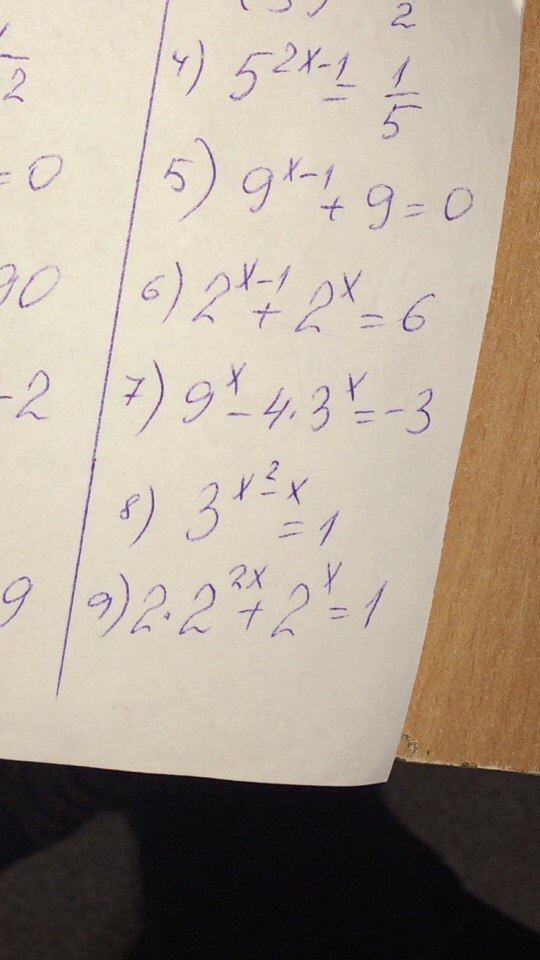 1/2
= 0
90
-2
9
2
4) 5^{2x-1} = 1/5
5) 9^{x-1} + 9 = 0
6) 2^{x-1} + 2^x = 6
7) 9^x - 4 · 3^x = -3
8) 3^{x^2-x} = 1
9) 2 · 2^{2x} + 2^x = 1